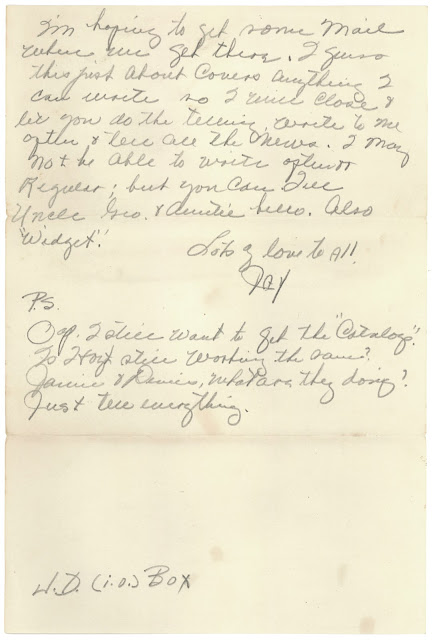 I'm hoping to get some Mail
when we get there. I guess
this just about Covers anything I
can write so I will close &
let you do the telling, write to me
often & tell all the News. I may
not be able to write often or
Regular; but you Can Tell
Uncle Geo. & Auntie hello. Also
"Widget".
Lots of love to All
Jay
P.S.
I still want to get the "Catalogs".
Is Hoyt still working the same?
& what are they doing?
Just tell everything.
W.D. (i.o.) Box